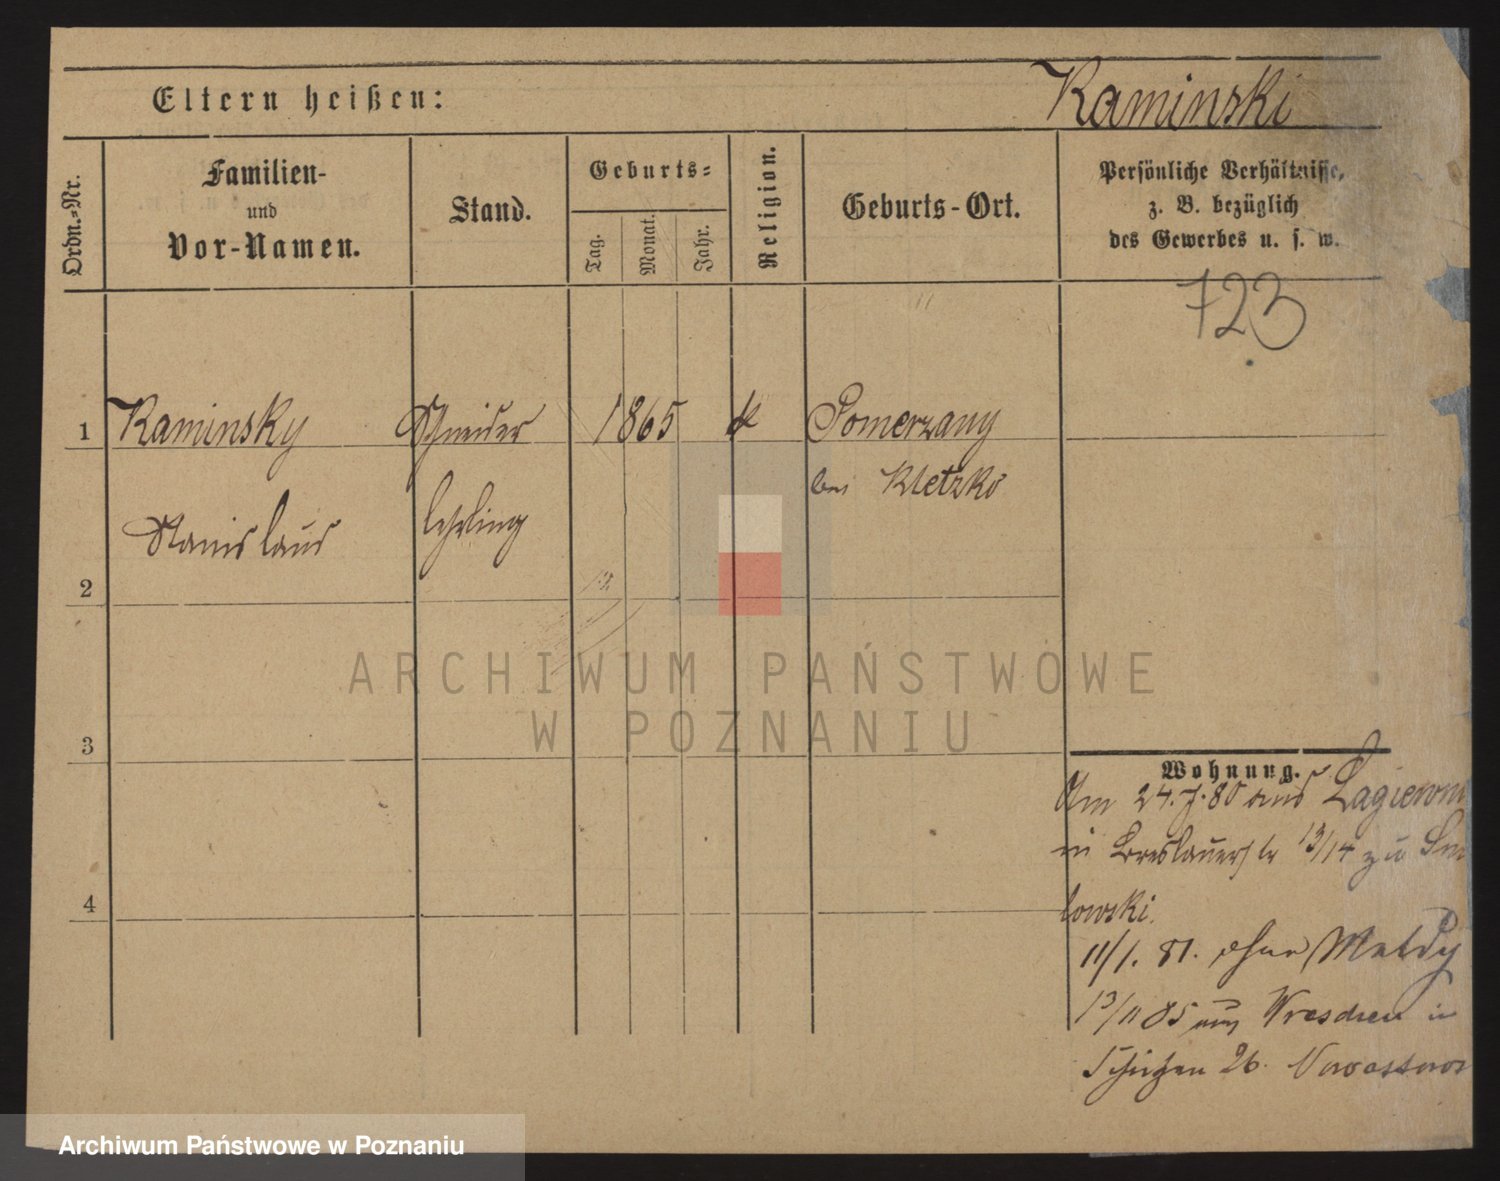 Eltern heißen: Kaminski
Ordn.=Nr.
Familien-
und
Vor-Namen.
Stand.
Geburts=
Tag.
Monat.
Jahr.
Religion.
Geburts-Ort.
Persönliche Verhältnisse,
z. B. bezüglich
des Gewerbes u. s. w.
723
1 Kaminsky Schneider 1865 k Pomerzany
bei Kletzko
Stanislaus lehrling
2
3
Wohnung.
Am 24.7.80 aus
in Breslauerstr 13/14 zu
lowski.
4
11/1. 81. ohne Meldg
13/11 85 aus Wreschen in
Schützen 26.
ARCHIWUM PAŃSTWOWE
W POZNANIU
Archiwum Państwowe w Poznaniu